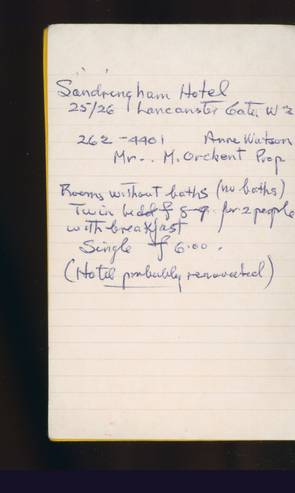 Sandringham Hotel
25/26 Lancanster Gate. W2
262-4401 Anne Watson
Mr.. M. Orchent Prop
Rooms without baths (no baths)
Twin bedd £ 8-9. for 2 people
with breakfast
Single £ 6.00.
(Hotel probably renovated)